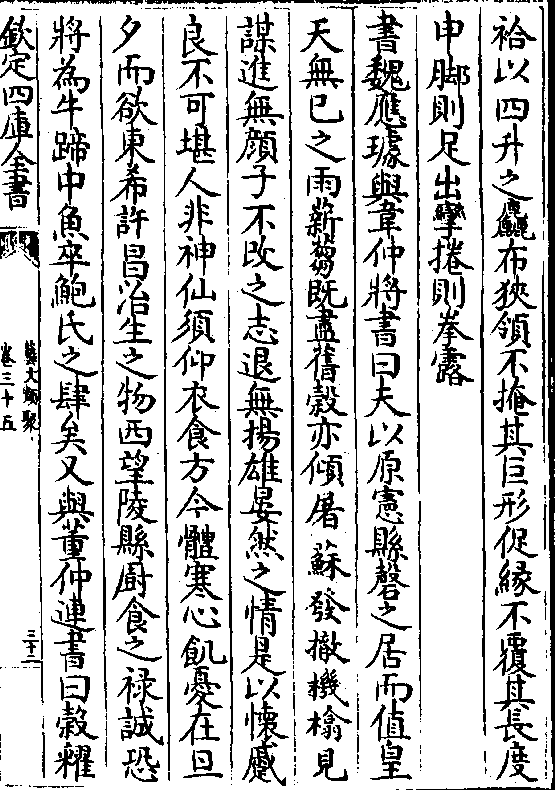 袷以四升之麤布狹領不掩其巨形促緣不覆其長度
申脚則足出攣捲則拳露
書魏應璩與韋仲將書曰夫以原憲縣磬之居而值皇
天無已之雨薪蒭既盡舊穀亦傾屠蘇發撤機榻見
謀進無顏子不改之志退無揚雄晏然之情是以懷慼
良不可堪人非神仙須仰衣食方今體寒心飢憂在旦
夕而欲東希許昌治生之物西望陵縣廚食之祿誠恐
將為牛蹄中魚卒鮑氏之肆矣又與董仲連書曰穀糴
欽定四庫全書
藝文類聚
卷三十五
三十二